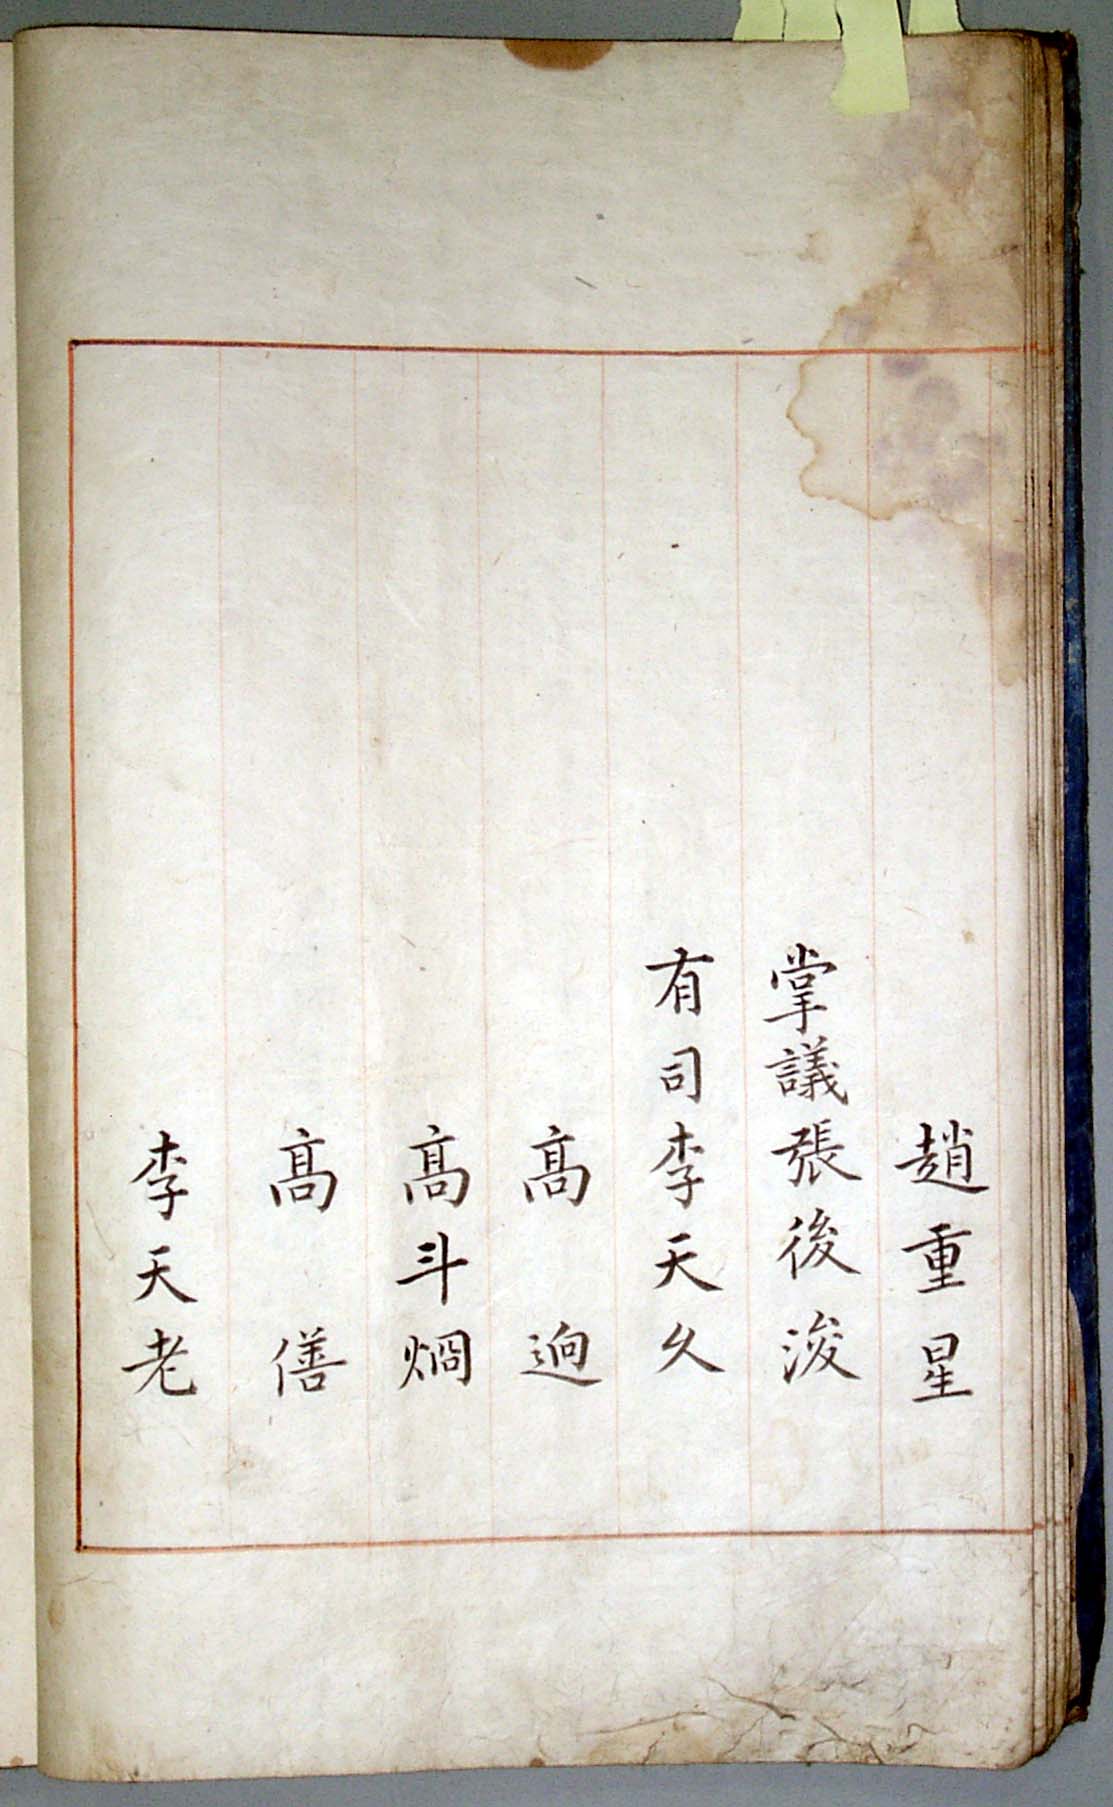 趙重星
掌議張後浚
有司李天久
髙逈
髙斗烱
髙僐
李天老